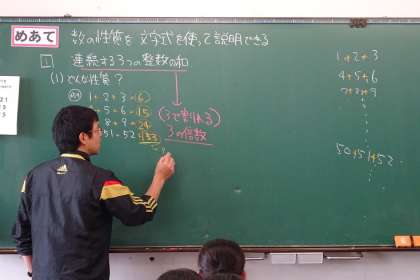 めあて 数の性質を文字式を使って説明できる
1 連続する3つの整数の和
(1) どんな性質？
1+2+3=6
4+5+6=15
7+8+9=24
51+52=153
(3で割れる)
3の倍数
1+2+3
4+5+6
7+8+9
50+51+52